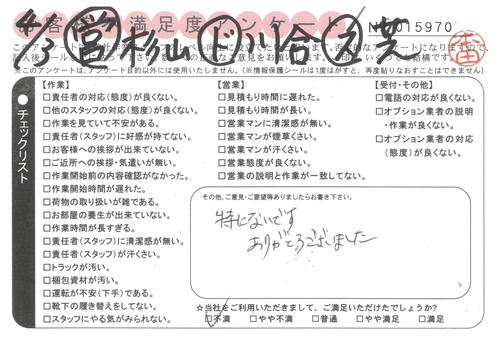 お客様満足度アンケート №0015970
4/3 営 杉山 ド 川合 益 芝
※このアンケートは、アンケート目的以外には使用いたしません。(※情報保護シールは1度はがすと、再度貼りなおすことはできません)
チェックリスト
【作業】
□責任者の対応(態度)が良くない。
□他のスタッフの対応(態度)が良くない。
□作業を見ていて不安がある。
□責任者(スタッフ)に好感が持てない。
□お客様への挨拶が出来ていない。
□ご近所への挨拶・気遣いが無い。
□作業開始前の内容確認がなかった。
□作業開始時間が遅れた。
□荷物の取り扱いが雑である。
□お部屋の養生が出来ていない。
□作業時間が長すぎる。
□責任者(スタッフ)に清潔感が無い。
□責任者(スタッフ)が汗くさい。
□トラックが汚い。
□梱包資材が汚い。
□運転が不安(下手)である。
□靴下の履き替えをしてない。
□スタッフにやる気がみられない。
【営業】
□見積もり時間に遅れた。
□見積もり時間が長い。
□営業マンに清潔感が無い。
□営業マンが煙草くさい。
□営業マンが汗くさい。
□営業態度が良くない。
□営業の説明と作業が一致してない。
【受付・その他】
□電話の対応が良くない。
□オプション業者の説明
・作業が良くない。
□オプション業者の対応
(態度)が良くない。
その他、ご意見・ご要望等ありましたらお書き下さい。
特にないです
ありがとうございました
☆当社をご利用いただきまして、ご満足いただけたでしょうか?
□不満 □やや不満 □普通 □やや満足 □満足